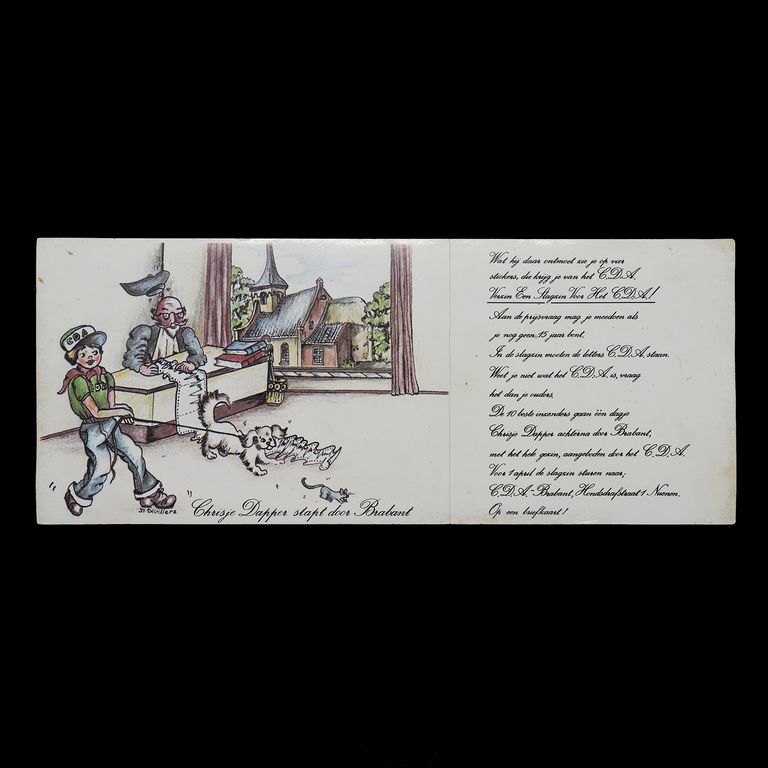 CDA
CDA
J. Divillers
Chrisje Dapper stapt door Brabant
Wat hij daar ontmoet zie je op vier
stickers, die krijg je van het C.D.A.
Verzin Een Slagzin Voor Het C.D.A.!
Aan de prijsvraag mag je meedoen als
je nog geen 15 jaar bent.
In de slagzin moeten de letters C.D.A. staan.
Weet je niet wat het C.D.A. is, vraag
het dan je ouders.
De 10 beste inzenders gaan één dagje
Chrisje Dapper achterna door Brabant,
met het hele gezin, aangeboden door het C.D.A.
Voor 1 april de slagzin sturen naar;
C.D.A.-Brabant, Hondsdrafstraat 1 Nuenen.
Op een briefkaart!